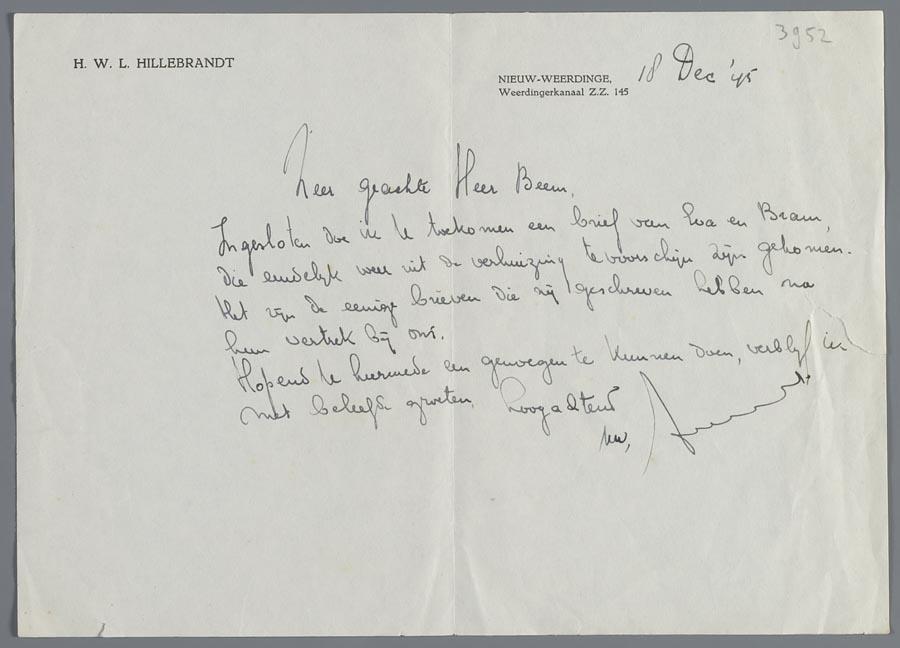 3952
H. W. L. HILLEBRANDT
NIEUW-WEERDINGE, 18 Dec '45
Weerdingerkanaal Z.Z. 145
Zeer geachte Heer Beem,
Ingesloten doe ik U toekomen een brief van Eva en Bram,
die eindelijk weer uit de verhuizing te voorschijn zijn gekomen.
Het zijn de eenige brieven die zij geschreven hebben na
hun vertrek bij ons.
Hopend U hiermede een genoegen te kunnen doen, verblijf ik
met beleefde groeten, hoogachtend
Uw,